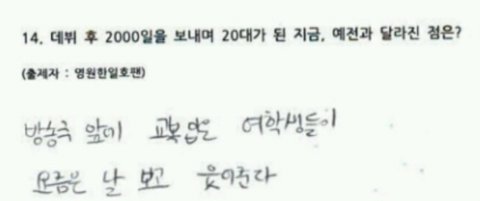 14. 데뷔 후 2000일을 보내며 20대가 된 지금, 예전과 달라진 점은?
(출제자 : 영원한일호팬)
방송국 앞에 교복입은 여학생들이
요즘은 날 보고 웃어준다